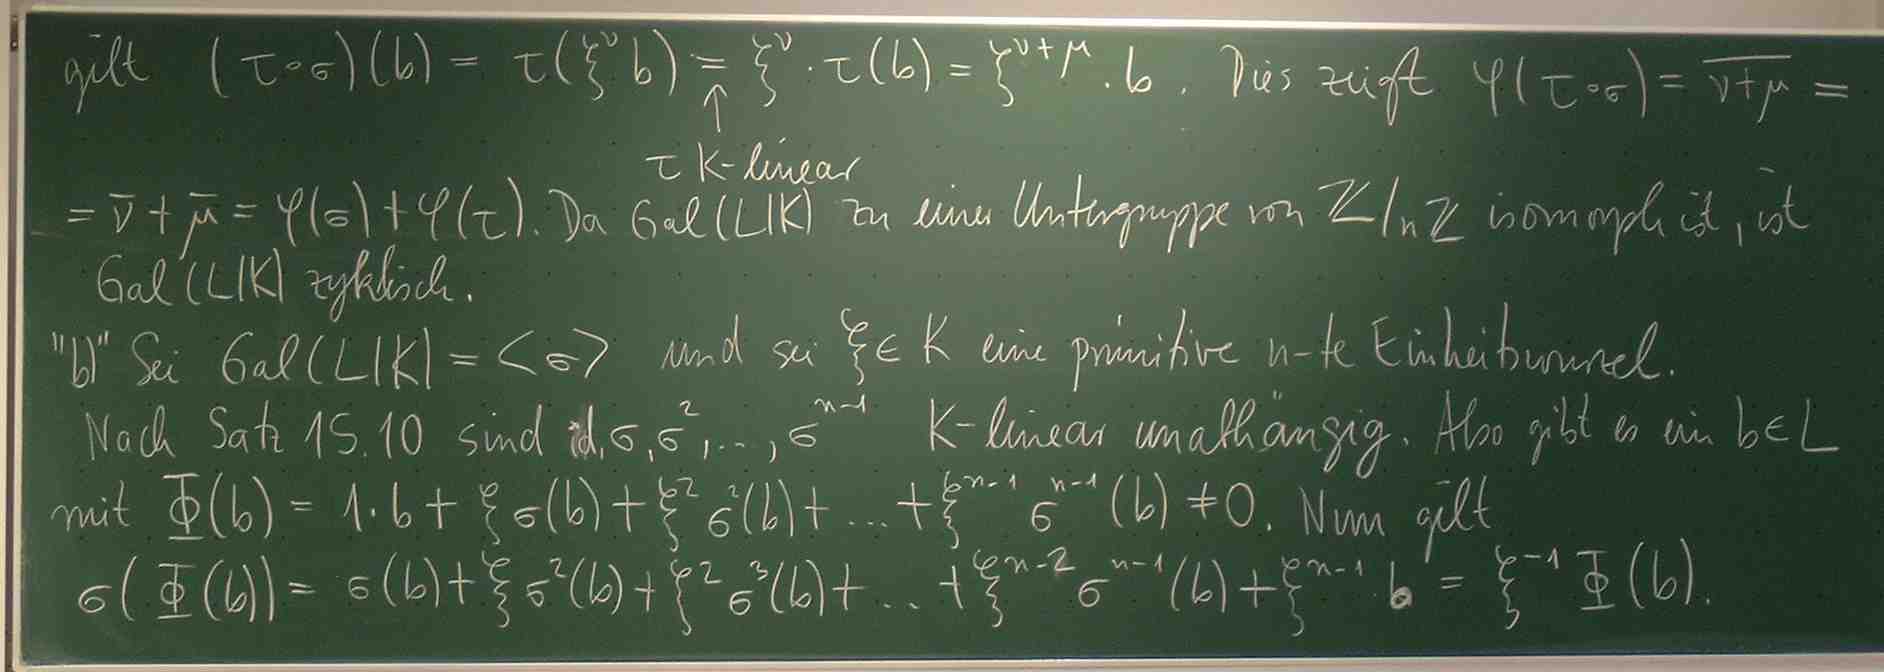 gilt (τ∘σ)(b) = τ(ξ^ν b) = ξ^ν · τ(b) = ξ^{ν+μ} · b. Dies zeigt φ(τ∘σ) = \overline{ν+μ} =
↑
τ K-linear
= ν̄ + μ̄ = φ(σ) + φ(τ). Da Gal(L|K) zu einer Untergruppe von ℤ/nℤ isomorph ist, ist
Gal(L|K) zyklisch.
"b)" Sei Gal(L|K) = <σ> und sei ξ ∈ K eine primitive n-te Einheitswurzel.
Nach Satz 15.10 sind id, σ, σ², ..., σ^{n-1} K-linear unabhängig. Also gibt es ein b ∈ L
mit Φ(b) = 1·b + ξ σ(b) + ξ² σ²(b) + ... + ξ^{n-1} σ^{n-1}(b) ≠ 0. Nun gilt
σ(Φ(b)) = σ(b) + ξ σ²(b) + ξ² σ³(b) + ... + ξ^{n-2} σ^{n-1}(b) + ξ^{n-1} b = ξ^{-1} Φ(b).